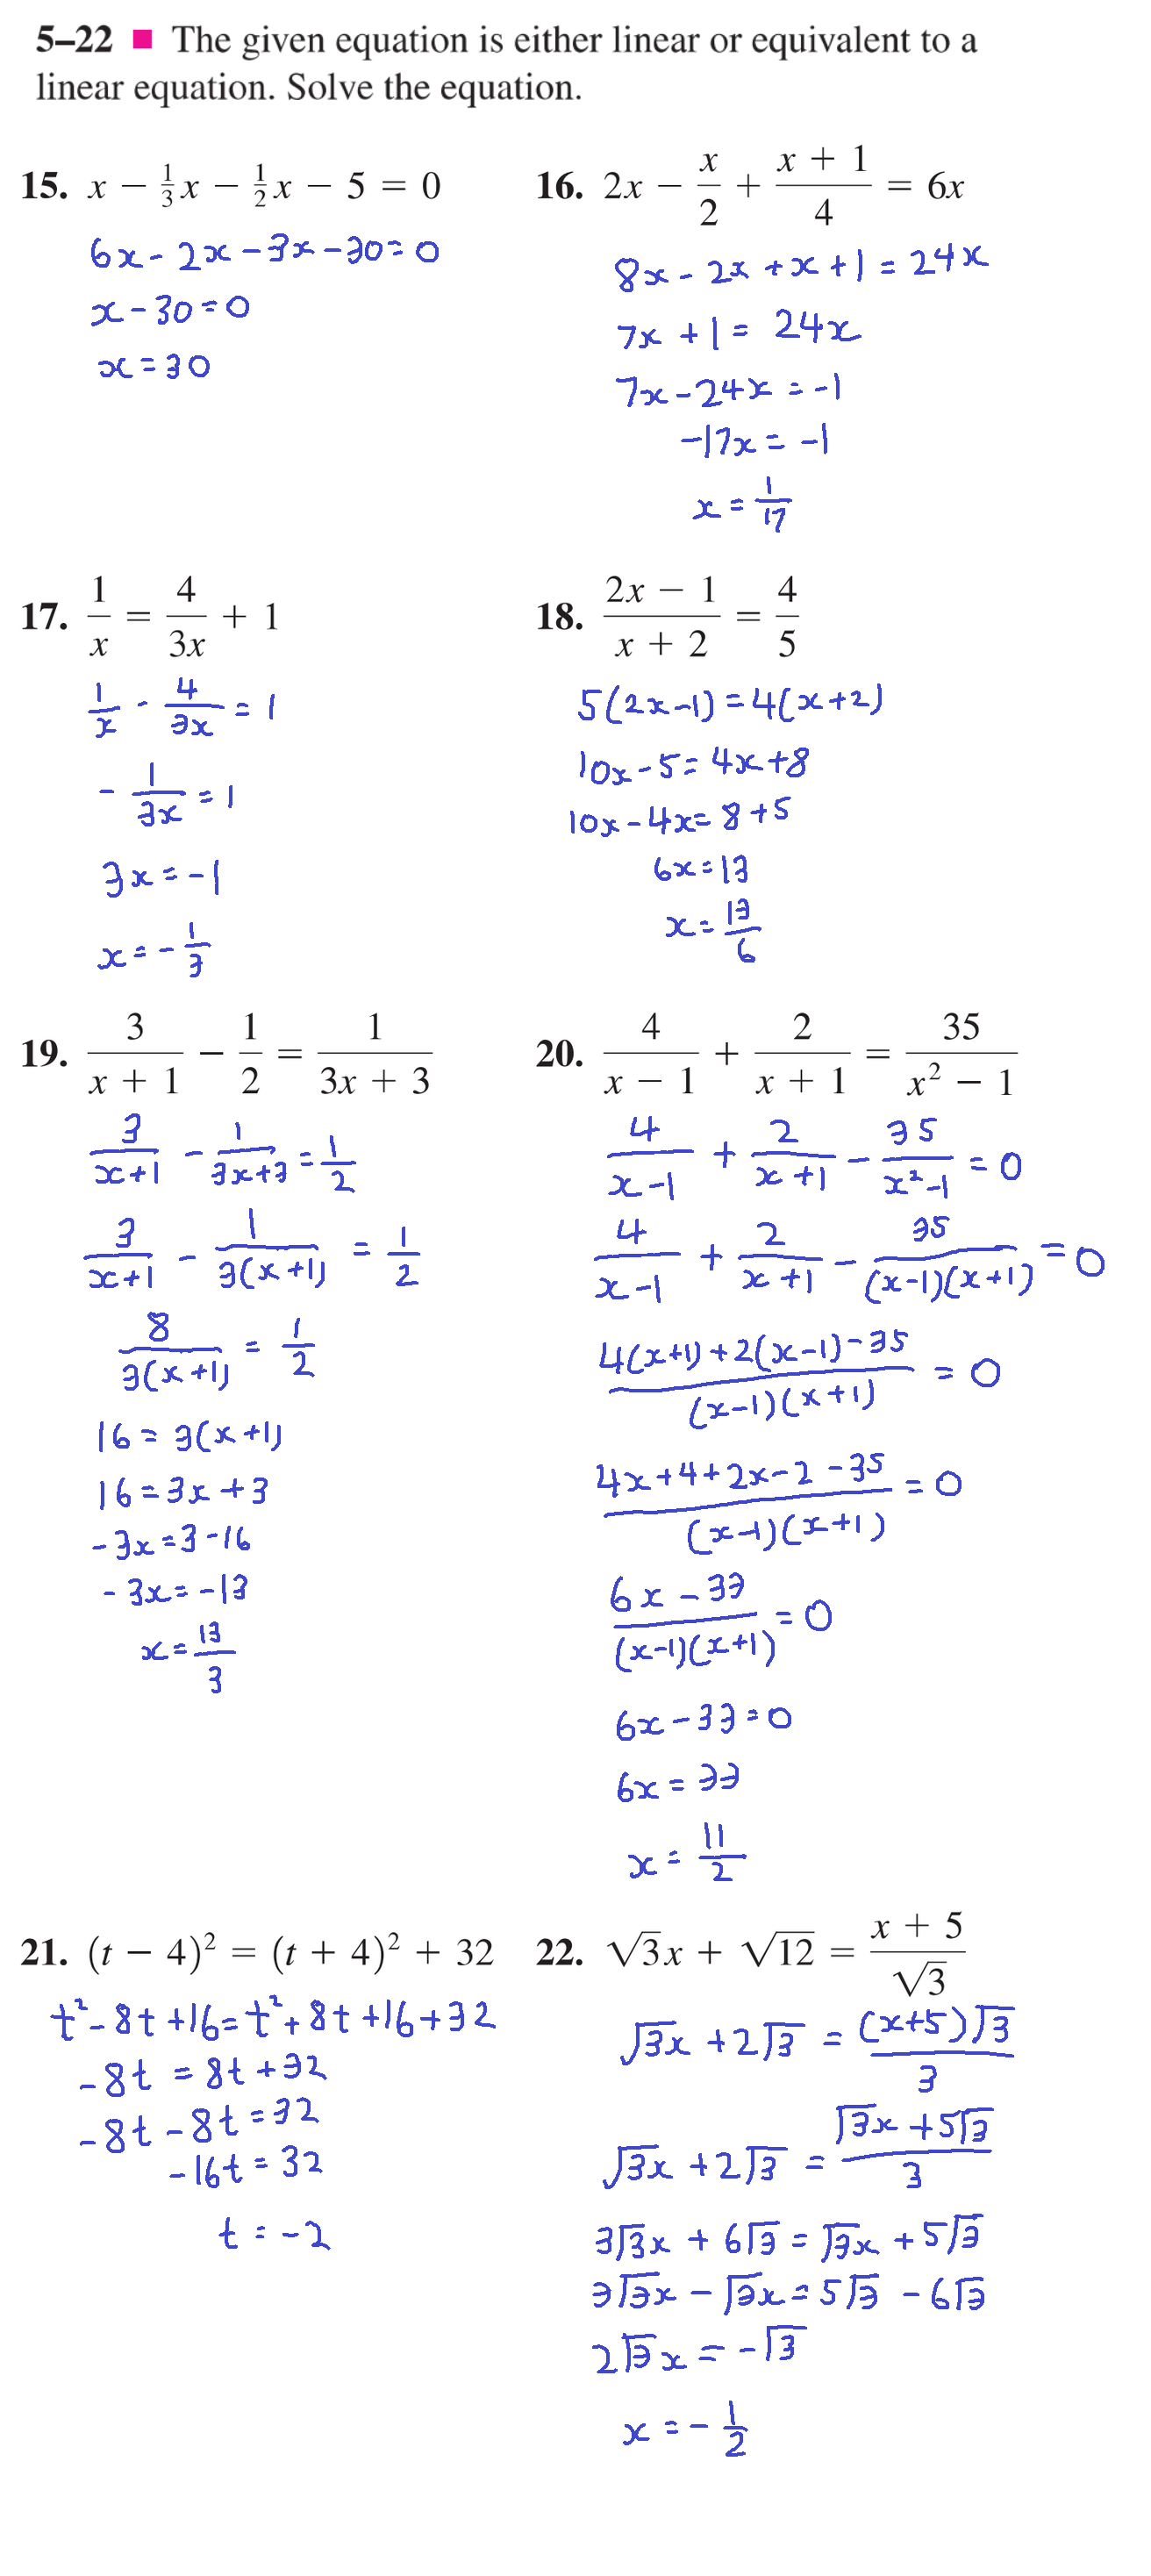 5–22 ■ The given equation is either linear or equivalent to a
linear equation. Solve the equation.
15. x − 1/3 x − 1/2 x − 5 = 0
6x - 2x - 3x - 30 = 0
x - 30 = 0
x = 30
16. 2x − x/2 + (x + 1)/4 = 6x
8x - 2x + x + 1 = 24x
7x + 1 = 24x
7x - 24x = -1
-17x = -1
x = 1/17
17. 1/x = 4/(3x) + 1
1/x - 4/(3x) = 1
- 1/(3x) = 1
3x = -1
x = - 1/3
18. (2x − 1)/(x + 2) = 4/5
5(2x-1) = 4(x+2)
10x - 5 = 4x + 8
10x - 4x = 8 + 5
6x = 13
x = 13/6
19. 3/(x + 1) − 1/2 = 1/(3x + 3)
3/(x+1) - 1/(3x+3) = 1/2
3/(x+1) - 1/(3(x+1)) = 1/2
8/(3(x+1)) = 1/2
16 = 3(x+1)
16 = 3x + 3
-3x = 3 - 16
-3x = -13
x = 13/3
20. 4/(x − 1) + 2/(x + 1) = 35/(x² − 1)
4/(x-1) + 2/(x+1) - 35/(x²-1) = 0
4/(x-1) + 2/(x+1) - 35/((x-1)(x+1)) = 0
(4(x+1) + 2(x-1) - 35)/((x-1)(x+1)) = 0
(4x + 4 + 2x - 2 - 35)/((x-1)(x+1)) = 0
(6x - 33)/((x-1)(x+1)) = 0
6x - 33 = 0
6x = 33
x = 11/2
21. (t − 4)² = (t + 4)² + 32
t² - 8t + 16 = t² + 8t + 16 + 32
-8t = 8t + 32
-8t - 8t = 32
-16t = 32
t = -2
22. √3x + √12 = (x + 5)/√3
√3x + 2√3 = (x+5)√3/3
√3x + 2√3 = (√3x + 5√3)/3
3√3x + 6√3 = √3x + 5√3
3√3x - √3x = 5√3 - 6√3
2√3x = -√3
x = - 1/2